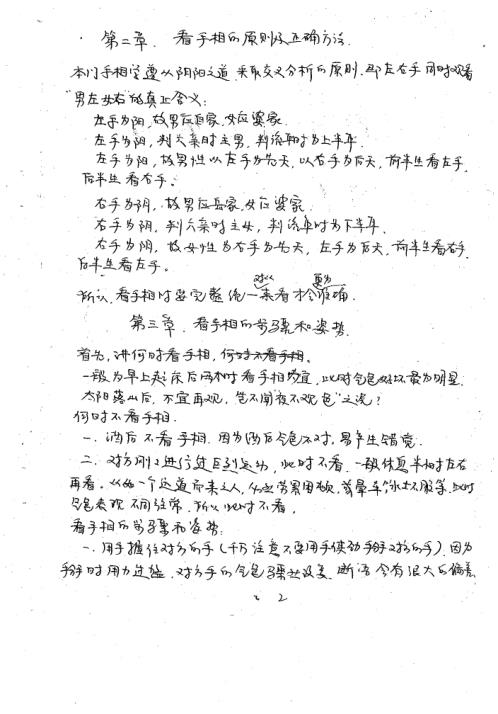 第二章. 看手相的原则及正确方法.
本门手相学遵从阴阳之道.采取交叉分析的原则.即左右手同时观看
"男左女右"的真正含义:
左手为阳,故男应岳家,女应婆家.
左手为阳,判六亲时主男,判流年时为上半年.
左手为阳,故男性以左手为先天,以右手为后天,前半生看左手,
后半生看右手.
右手为阴,故男应岳家,女应婆家.
右手为阴,判六亲时主女,判流年时为下半年.
右手为阴,故女性为右手为先天,左手为后天,前半生看右手,
后半生看左手.
所以,看手相时要完整统一来看才会准确.
第三章.看手相的步骤和姿势.
首先,讲何时看手相,何时不看手相.
一般为早上起床后两小时看手相为宜,此时气色好坏最为明显.
太阳落山后,不宜再观,岂不闻夜不观色"之说?
何时不看手相.
一.酒后不看手相.因为酒后气色不对,易产生错觉.
二.对方刚刚进行过巨烈运动,此时不看.一般休息半小时左右
再看.从如一个远道而来之人,必劳累困顿,晕车水土不服等.此时
气色表现不同往常.所以此时不看.
看手相的步骤和姿势:
一.用手握住对方的手(千万注意不要用手使劲掰对方的手).因为
掰时用力过猛.对方手的气色骤然改变.断语会有很大的偏差
2